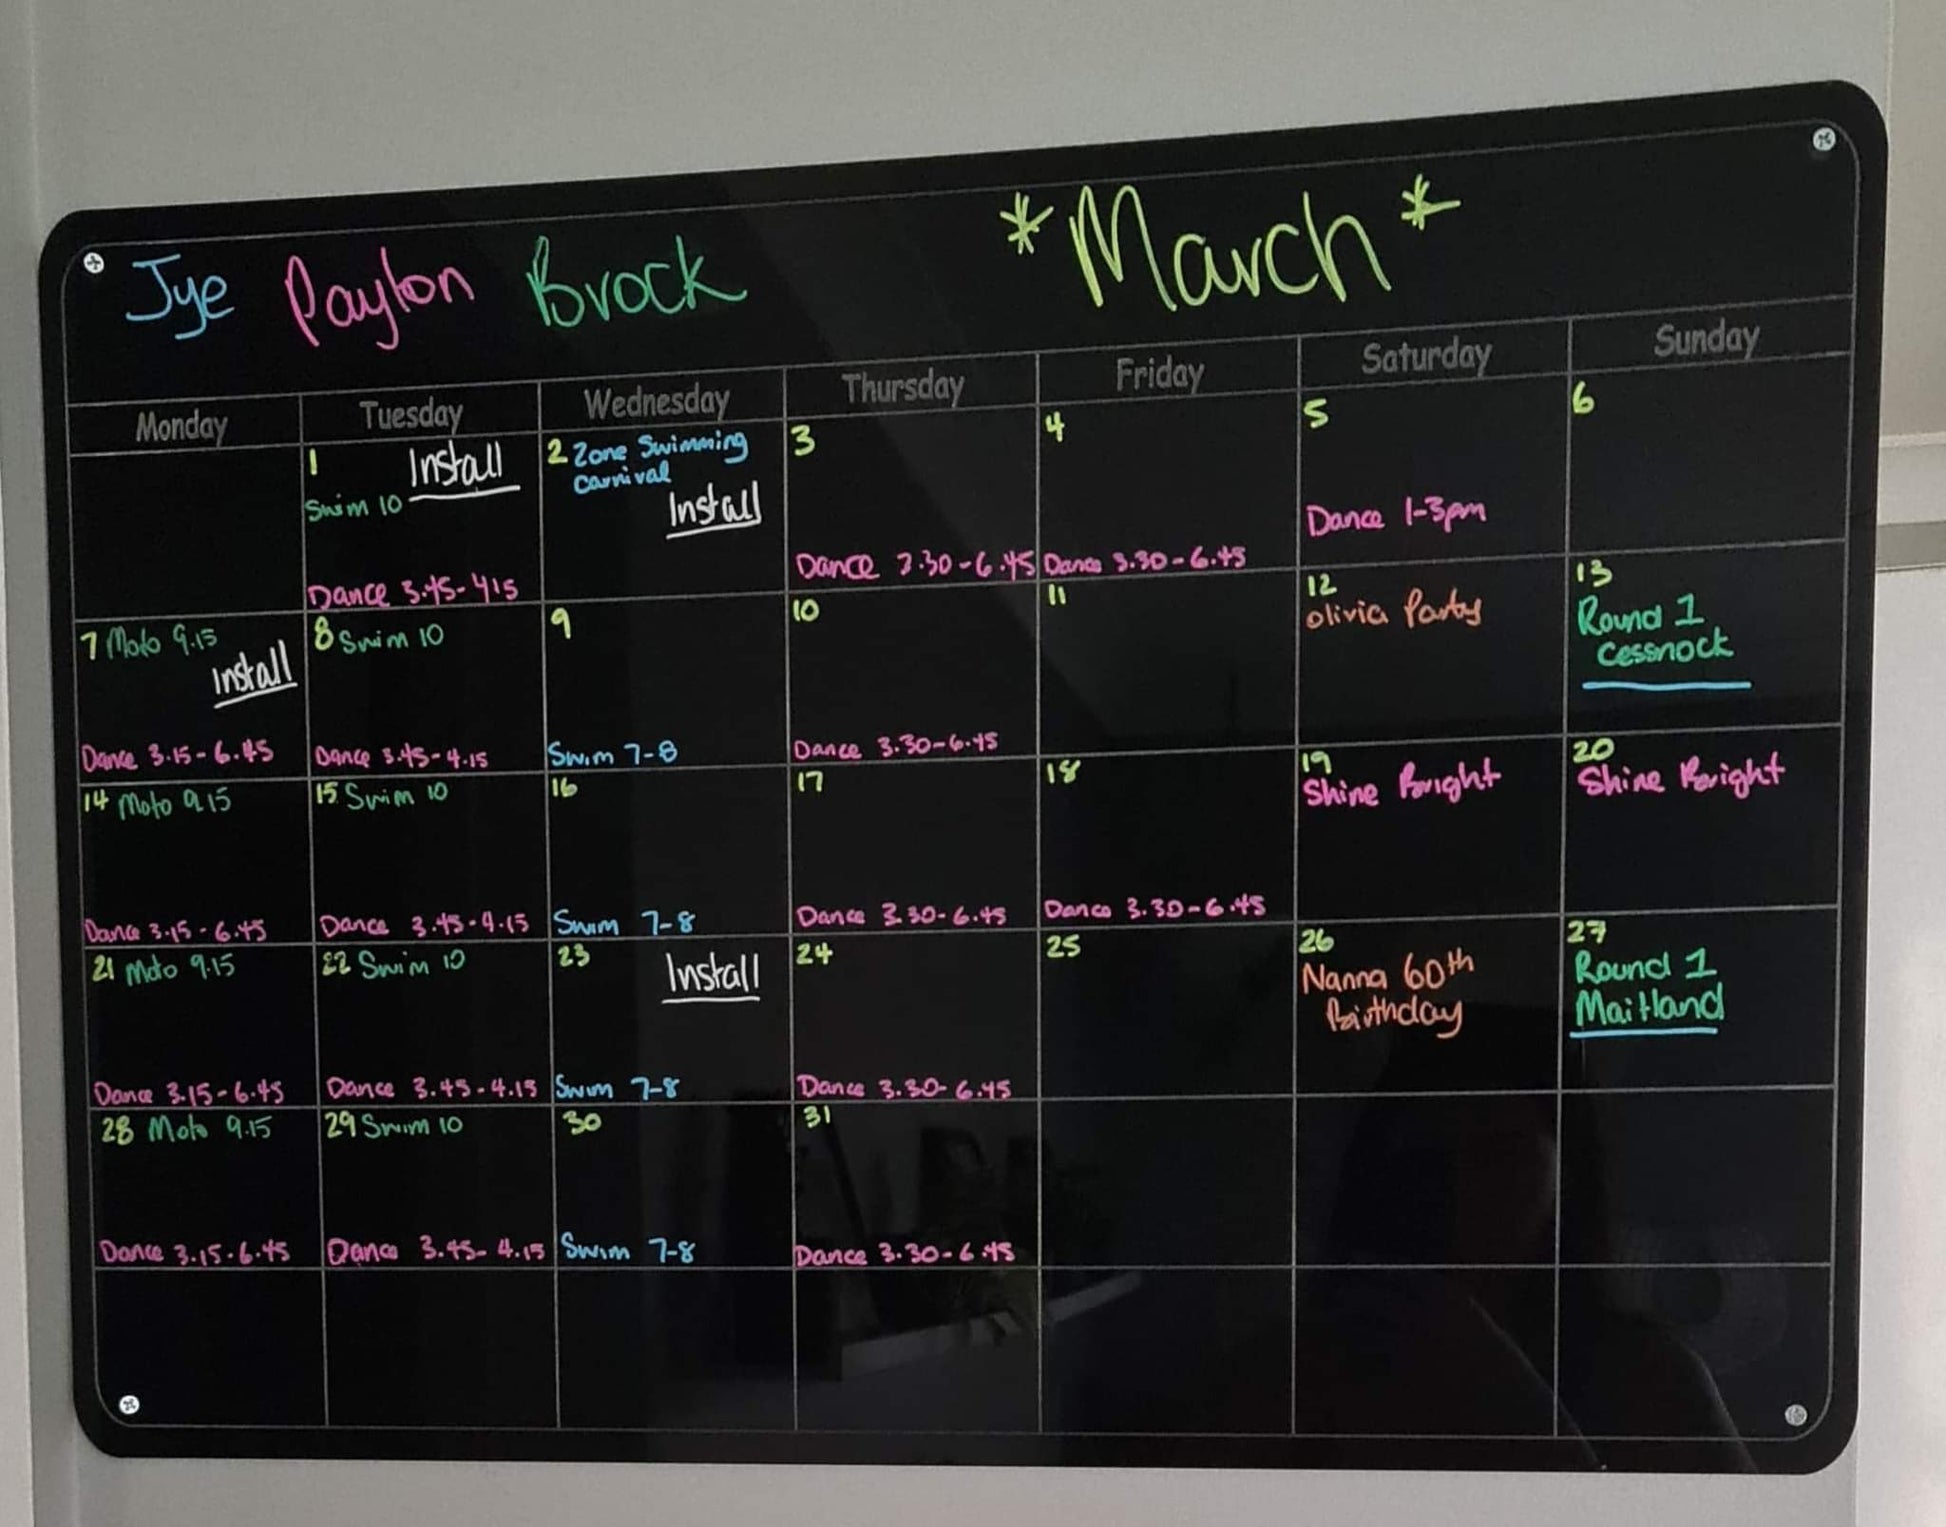 Jye Payton Brock *March*
Monday Tuesday Wednesday Thursday Friday Saturday Sunday
1 Install
Swim 10
Dance 3.45-415
2 Zone Swimming
Carnival
Install
3
Dance 3.30-6.45
4
Dance 3.30-6.45
5
Dance 1-3pm
6
7 Moto 9.15
Install
Dance 3.15-6.45
8 Swim 10
Dance 3.45-4.15
9
Swim 7-8
10
Dance 3.30-6.45
11
12
olivia Party
13
Round 1
Cessnock
14 Moto 9.15
Dance 3.15-6.45
15 Swim 10
Dance 3.45-4.15
16
Swim 7-8
17
Dance 3.30-6.45
18
Dance 3.30-6.45
19
Shine Bright
20
Shine Bright
21 Moto 9.15
Dance 3.15-6.45
22 Swim 10
Dance 3.45-4.15
23
Install
Swim 7-8
24
Dance 3.30-6.45
25
26
Nanna 60th
Birthday
27
Round 1
Maitland
28 Moto 9.15
Dance 3.15-6.45
29 Swim 10
Dance 3.45-4.15
30
Swim 7-8
31
Dance 3.30-6.45